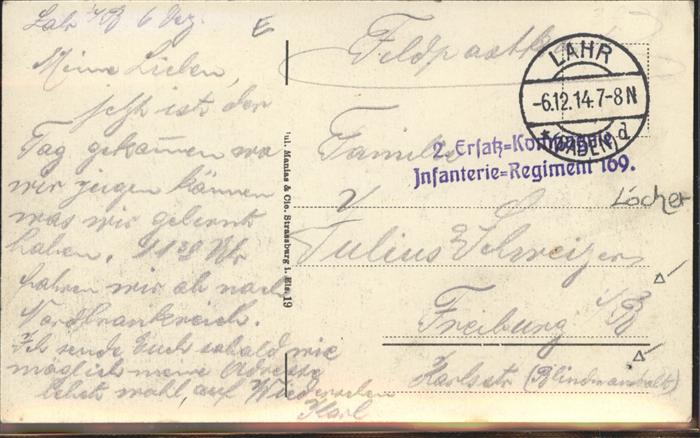 Lahr i/B 6 Dez.
Meine Lieben,
jetzt ist der
Tag gekommen wo
wir zeigen können
was wir gelernt
haben. 1138 Uhr
fahren wir ab nach
Nordfrankreich.
Ich sende Euch sobald wie
möglich meine Adresse
lebt wohl, auf Wiedersehen
Karl
Jul. Manias & Cie. Strassburg i. Els. 19
Feldpostkarte
LAHR
-6.12.14.7-8N
(BADEN) d
2. Ersatz-Kompagnie
Infanterie-Regiment 169.
Familie
Löcher
Julius Schweizer
Freiburg i/B
Karlstr (Blindenanstalt)